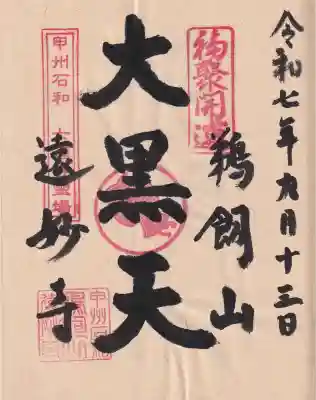 令和七年九月十三日
福聚開運
鵜飼山
大黒天
甲州石和
遠妙寺